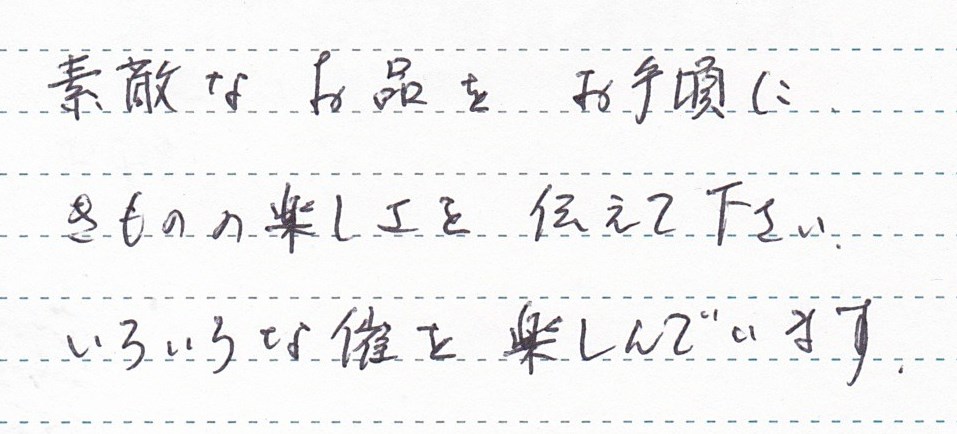 素敵な お品を お手頃に.
きものの楽しさを 伝えて下さい.
いろいろな催を 楽しんでいます.